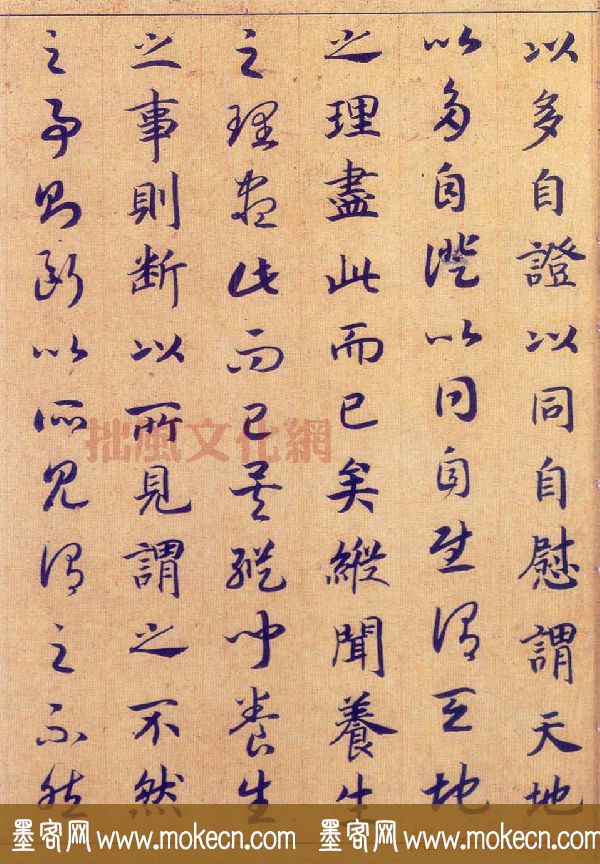 以多自證以同自慰謂天地
以多自證以同自慰謂天地
之理盡此而已矣縱聞養生
之理盡此而已矣縱聞養生
之事則断以所見謂之不然
之事則断以所見謂之不然
拙風文化網
墨客网 www.mokecn.com 墨客网 www.mokecn.com